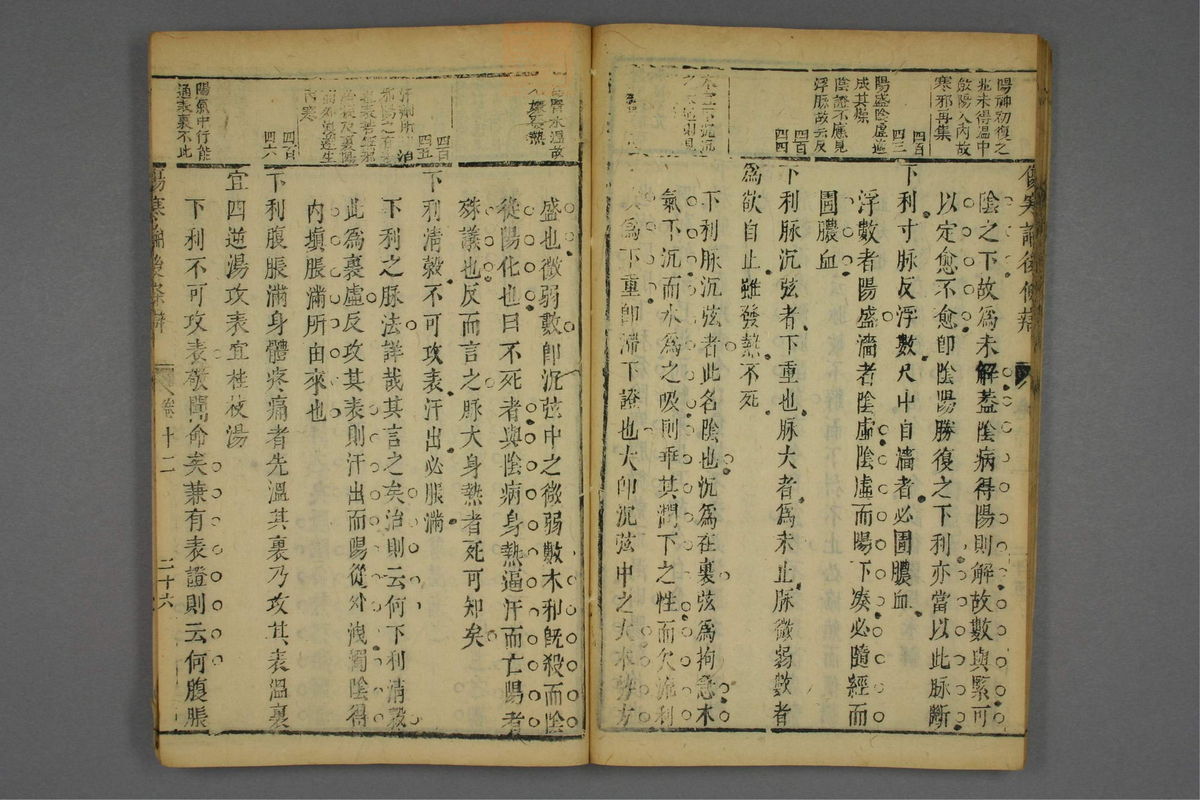 陰之下故為未解蓋陰病得陽則解故數與緊可
以定愈不愈卽陰陽勝復之下利亦當以此脉斷
下利寸脉反浮數尺中自濇者必圊膿血
浮數者陽盛濇者陰虛陰虛而陽下湊必隨經而
圊膿血
下利脉沉弦者下重也脉大者為未止脉微弱數者
為欲自止雖發熱不死
下利脉沉弦者此名陰也沉為在裏弦為拘急木
氣下沉而水為之吸則乖其潤下之性而欠流利
為下重卽滯下證也大卽沉弦中之大木勢方
陽神初復之
兆未得溫中
斂陽入內故
寒邪再集
四百
四三
陽盛陰虛遂
成其燥
陰證不應見
浮脉故云反
四百
四四
盛也微弱數卽沉弦中之微弱數木利旣殺而陰
從陽化也曰不死者與陰病身熱逼汗而亡陽者
殊議也反而言之脉大身熱者死可知矣
下利清穀不可攻表汗出必脹滿
下利之脉法詳哉其言之矣治則云何下利清穀
此為裏虛反攻其表則汗出而陽從外洩濁陰得
內塡脹滿所由來也
下利腹脹滿身體疼痛者先溫其裏乃攻其表溫裏
宜四逆湯攻表宜桂枝湯
下利不可攻表敬聞命矣兼有表證則云何腹脹
水溫故
熱
四百
四五
內寒
四百
四六
陽氣中行能
通表裏不此
十二
二十六